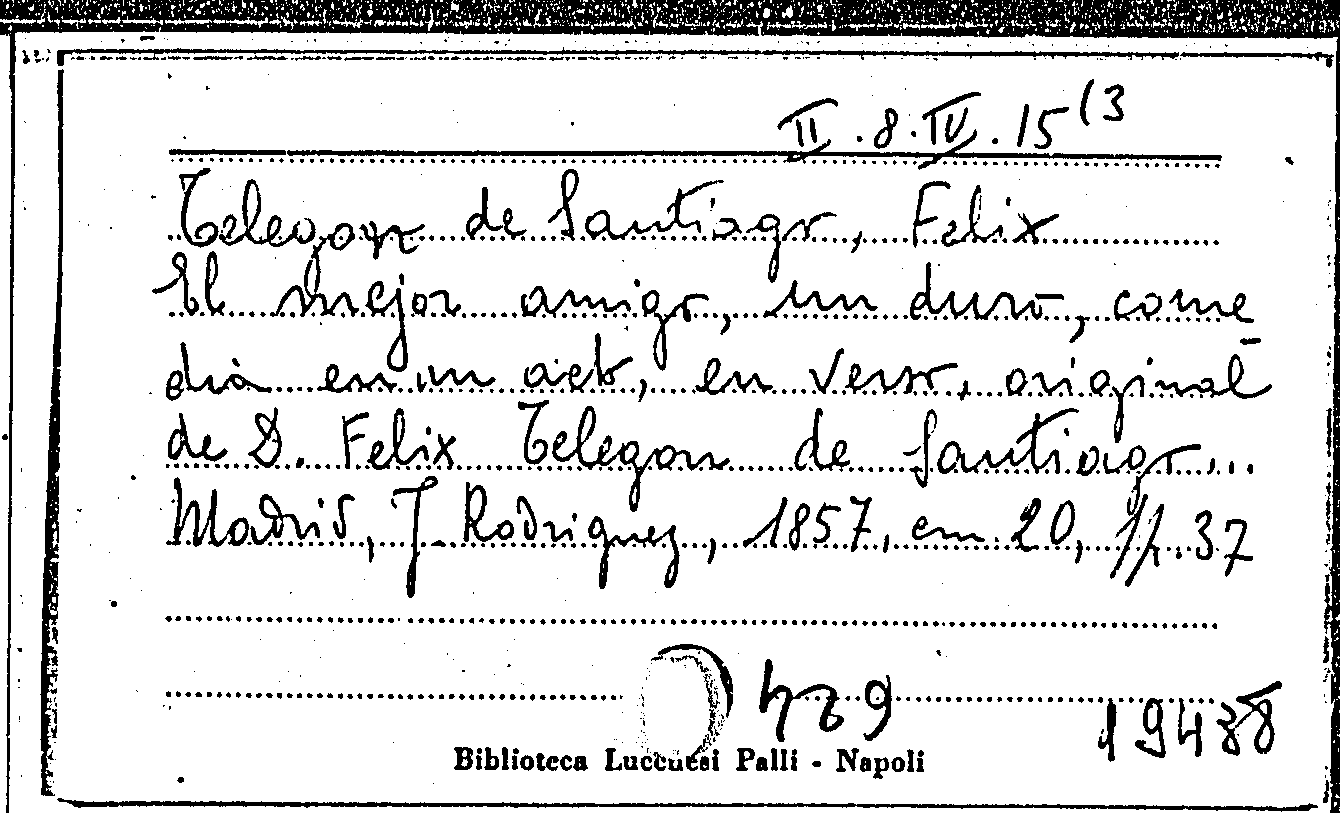 II.8.IV.15(3
Telegon de Santiago, Felix
El mejor amigo, un duro, come
dia en un acto, en verso, original
de D. Felix Telegon de Santiago...
Madrid, J. Rodriguez, 1857, cm 20, pp. 37
Biblioteca Lucchesi Palli - Napoli